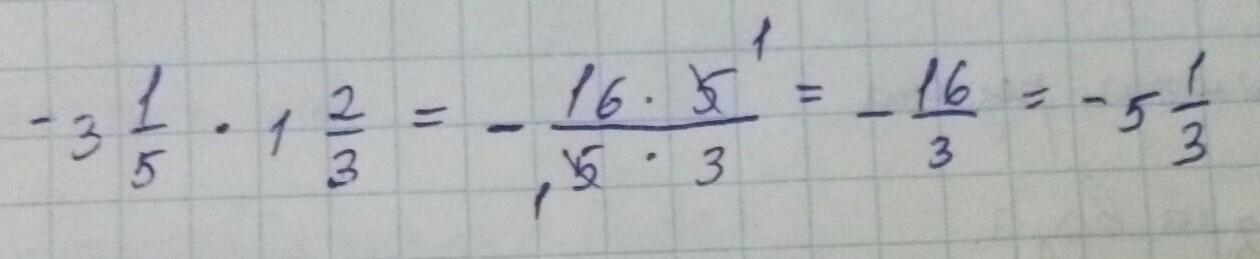 -3 1/5 · 1 2/3 = - 16 · 5 1 / 1 5 · 3 = - 16/3 = -5 1/3